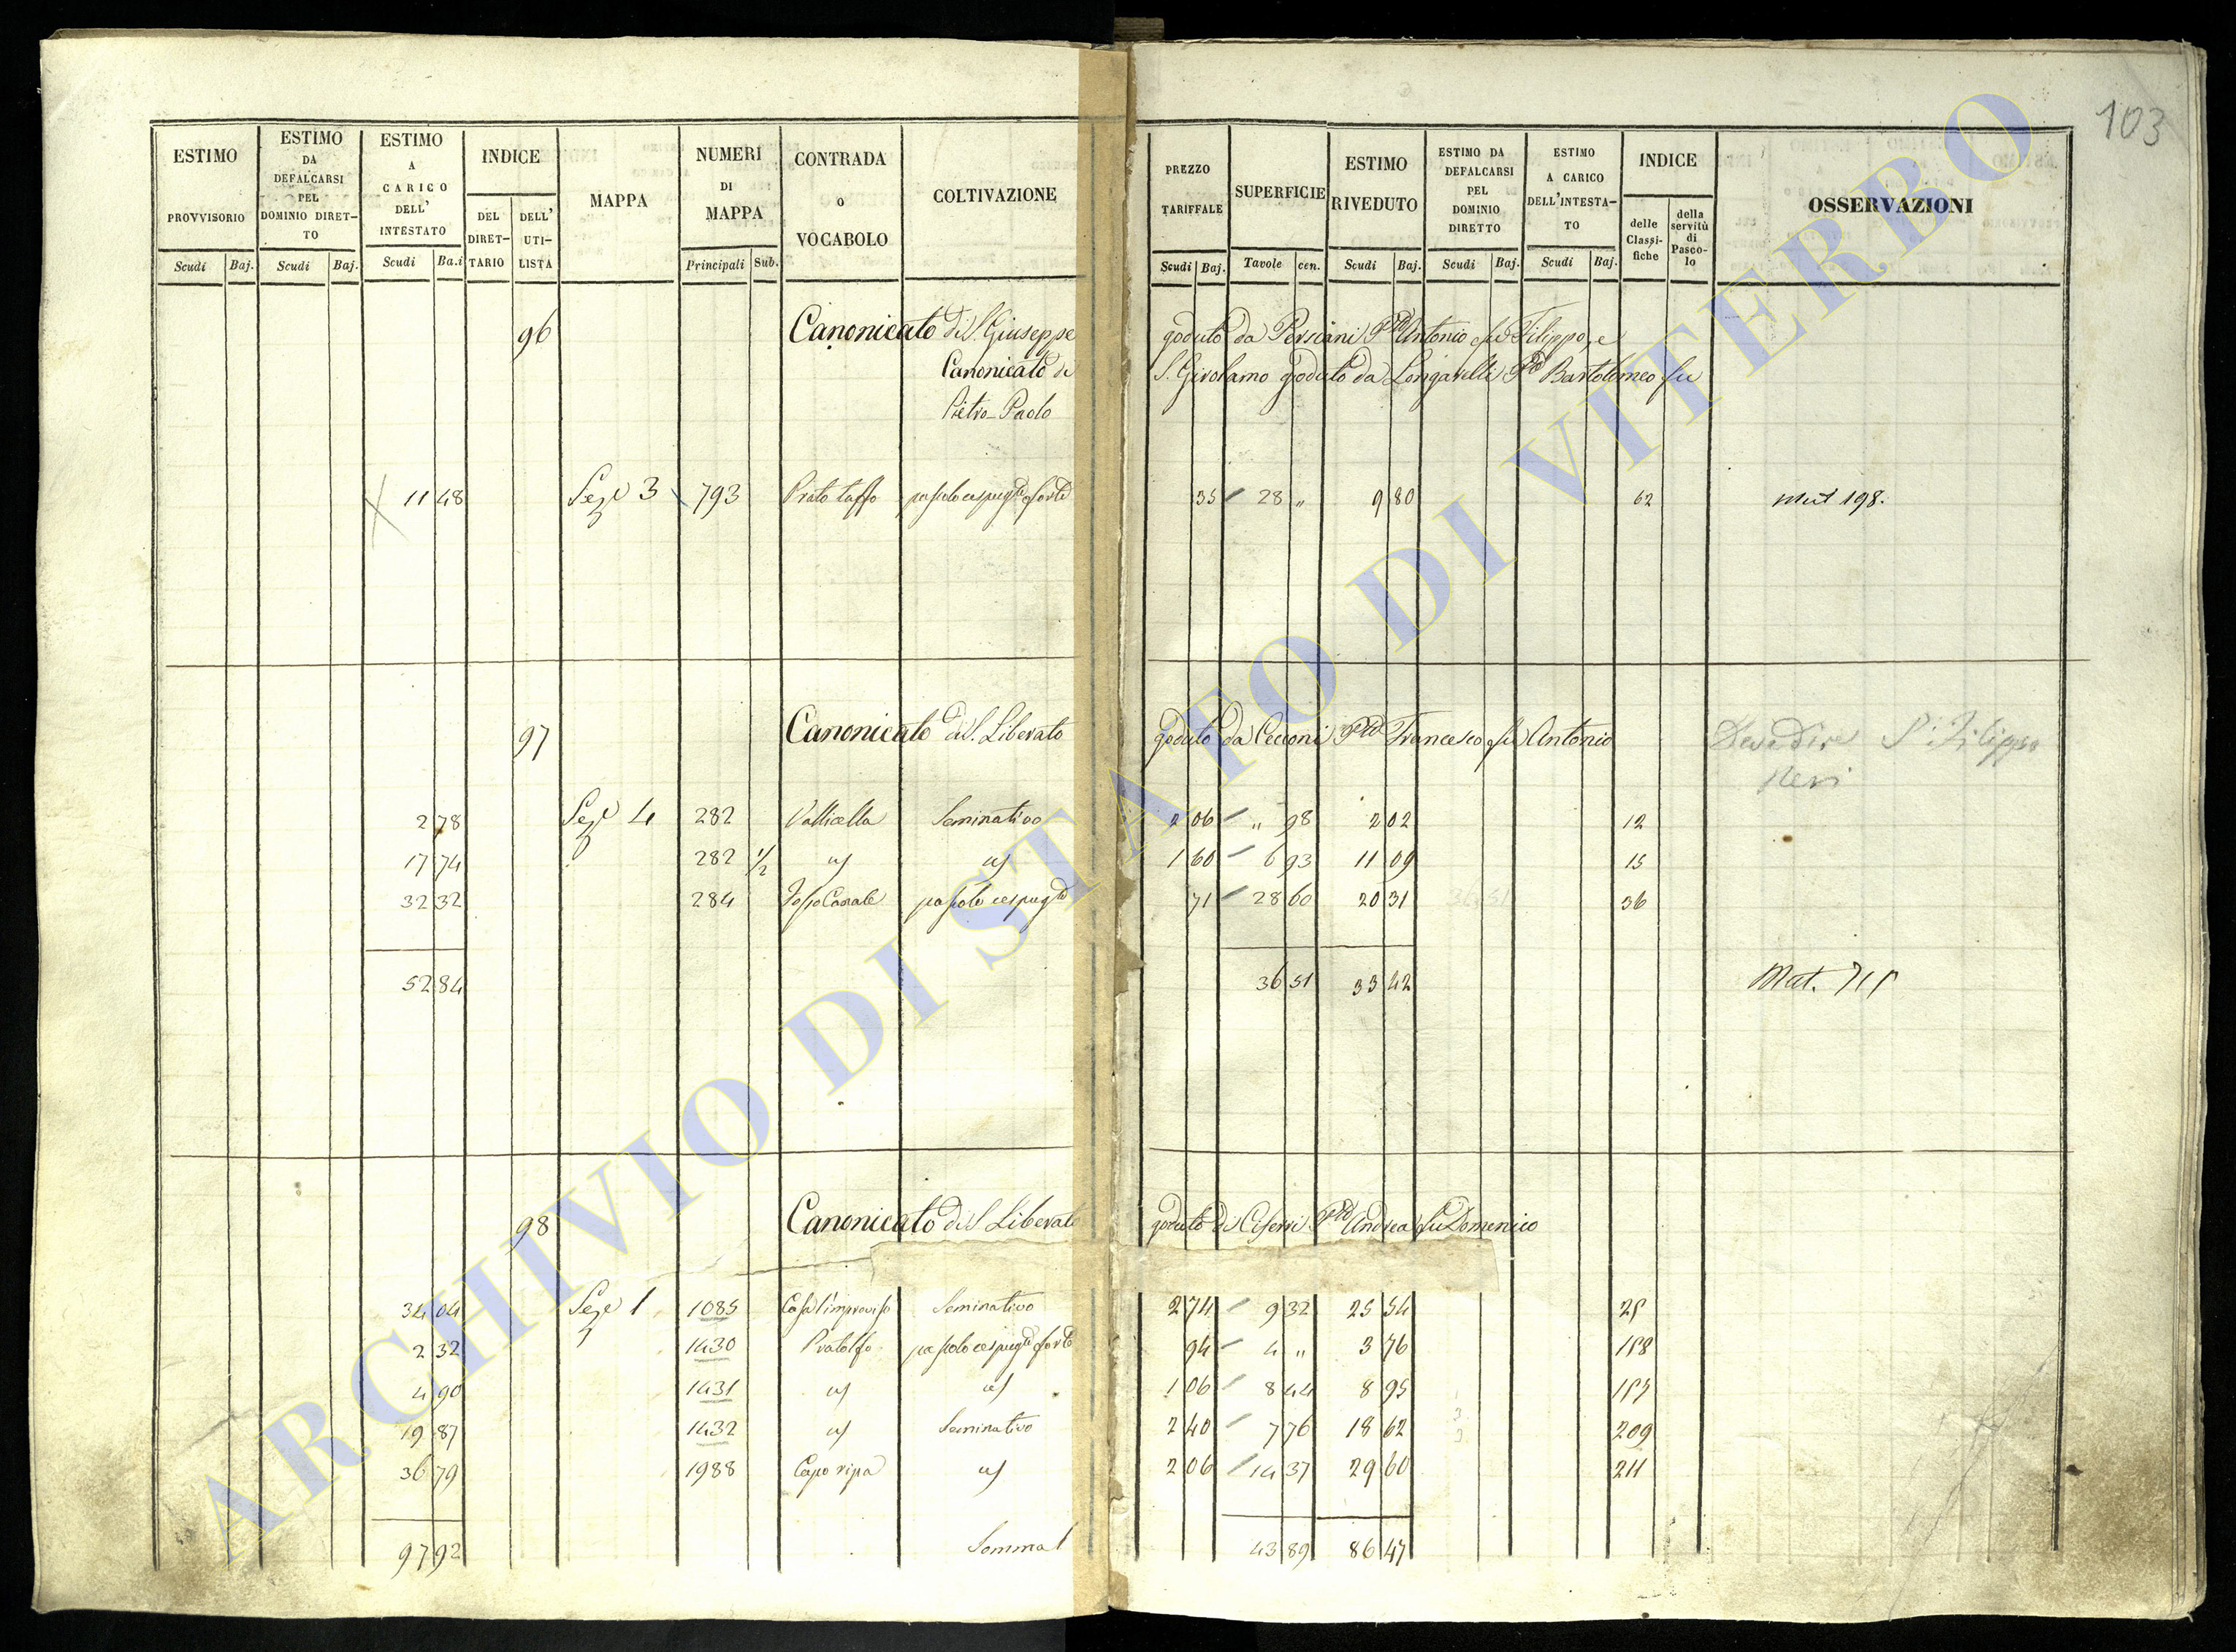 103
ESTIMO PROVVISORIO | ESTIMO DA DEFALCARSI PEL DOMINIO DIRET-TO | ESTIMO A CARICO DELL' INTESTATO | INDICE | MAPPA | NUMERI DI MAPPA | CONTRADA O VOCABOLO | COLTIVAZIONE | PREZZO TARIFFALE | SUPERFICIE | ESTIMO RIVEDUTO | ESTIMO DA DEFALCARSI PEL DOMINIO DIRETTO | ESTIMO A CARICO DELL'INTESTA-TO | INDICE | OSSERVAZIONI
DEL DIRET-TARIO | DELL' UTI-LISTA | delle Classi-fiche | della servitù di Pasco-lo
Scudi | Baj. | Scudi | Baj. | Scudi | Ba.i | Principali | Sub. | Scudi | Baj. | Tavole | cen. | Scudi | Baj. | Scudi | Baj. | Scudi | Baj.
96 Canonicato di S. Giuseppe goduto da Persiani Antonio fu Filippo, e
Canonicato di S. Girolamo goduto da Longarelli Bartolomeo fu
Pietro Paolo
11 48 Seze 3 793 Prato taffo pascolo cespugto forte 35 28 „ 9 80 62 Mut 198.
97 Canonicato di S. Liberato goduto da Cecconi Francesco fu Antonio Deve dire S. Filippo
Neri
2 78 Seze 4 282 Vallicella Seminativo 2 06 „ 98 2 02 12
17 74 282 1/2 1 60 6 93 11 09 15
32 32 284 Fosso Canale pascolo cespugto 71 28 60 20 31 36
52 84 36 51 33 42 Mut. 715
98 Canonicato di S. Liberato goduto da Andrea fu Domenico
34 04 Sezе 1 1085 Seminativo 2 74 9 32 25 54 25
2 32 1430 Pratolfo pascolo cespugto forte 94 4 „ 3 76 158
4 90 1431 1 06 8 44 8 95
19 87 1432 Seminativo 2 40 7 76 18 62 209
36 79 1988 Capo ripa 2 06 14 37 29 60 211
97 92 Somma 43 89 86 47
ARCHIVIO DI STATO DI VITERBO